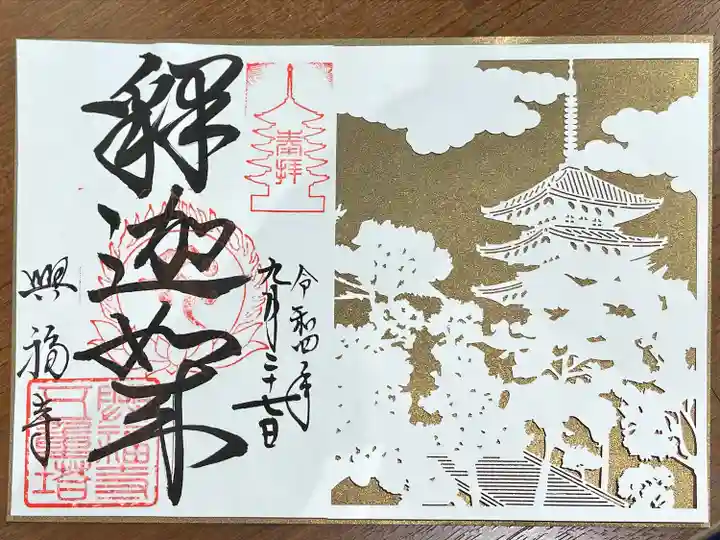 奉拝
令和四年
九月二十七日
釋迦如来
興福寺
興福寺
五重塔